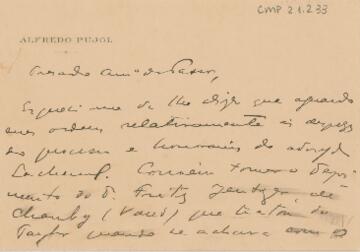 CMP 2.1.2.33
ALFREDO PUJOL
Presado Am.º dr. Passos,
Esqueci-me de lhe dizer que aguardo
suas ordens relativamente ás despezas
do processo e honorarios do advogado
Lachaud. Convém tomar o depoi-
mento do d. Fritz
(Vaud) que tratou do
Taylor quando se achava com